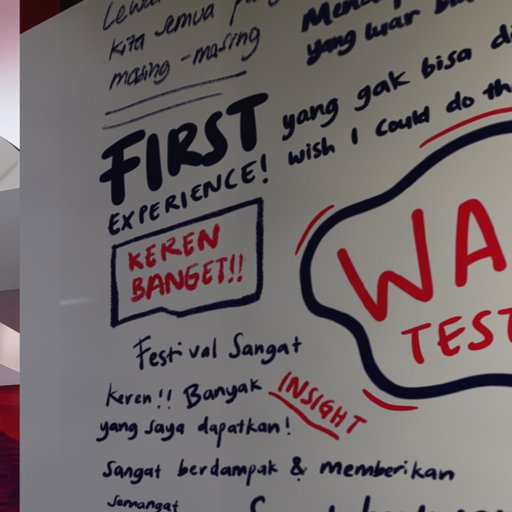 kita semua
masing-masing
yang luar
FIRST
EXPERIENCE!
yang gak bisa
wish I could do
KEREN
BANGET!!
WA
TEST
Festival Sangat
keren!! Banyak INSIGHT
yang saya dapatkan!
Sangat berdampak & memberikan
semangat